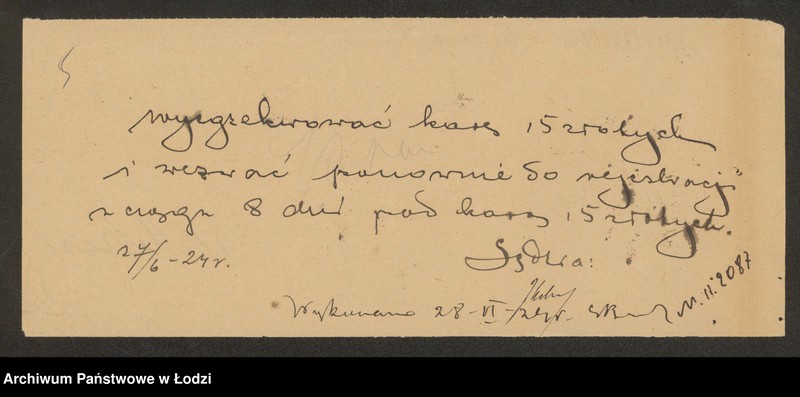 wyegzekwować karę 15 złotych
i wezwać ponownie do rejestracji
w ciągu 8 dni pod karą 15 złotych.
27/6-24 r.
Sędzia:
Wykonano 28-VI-24 r.
M. II. 2087
Archiwum Państwowe w Łodzi